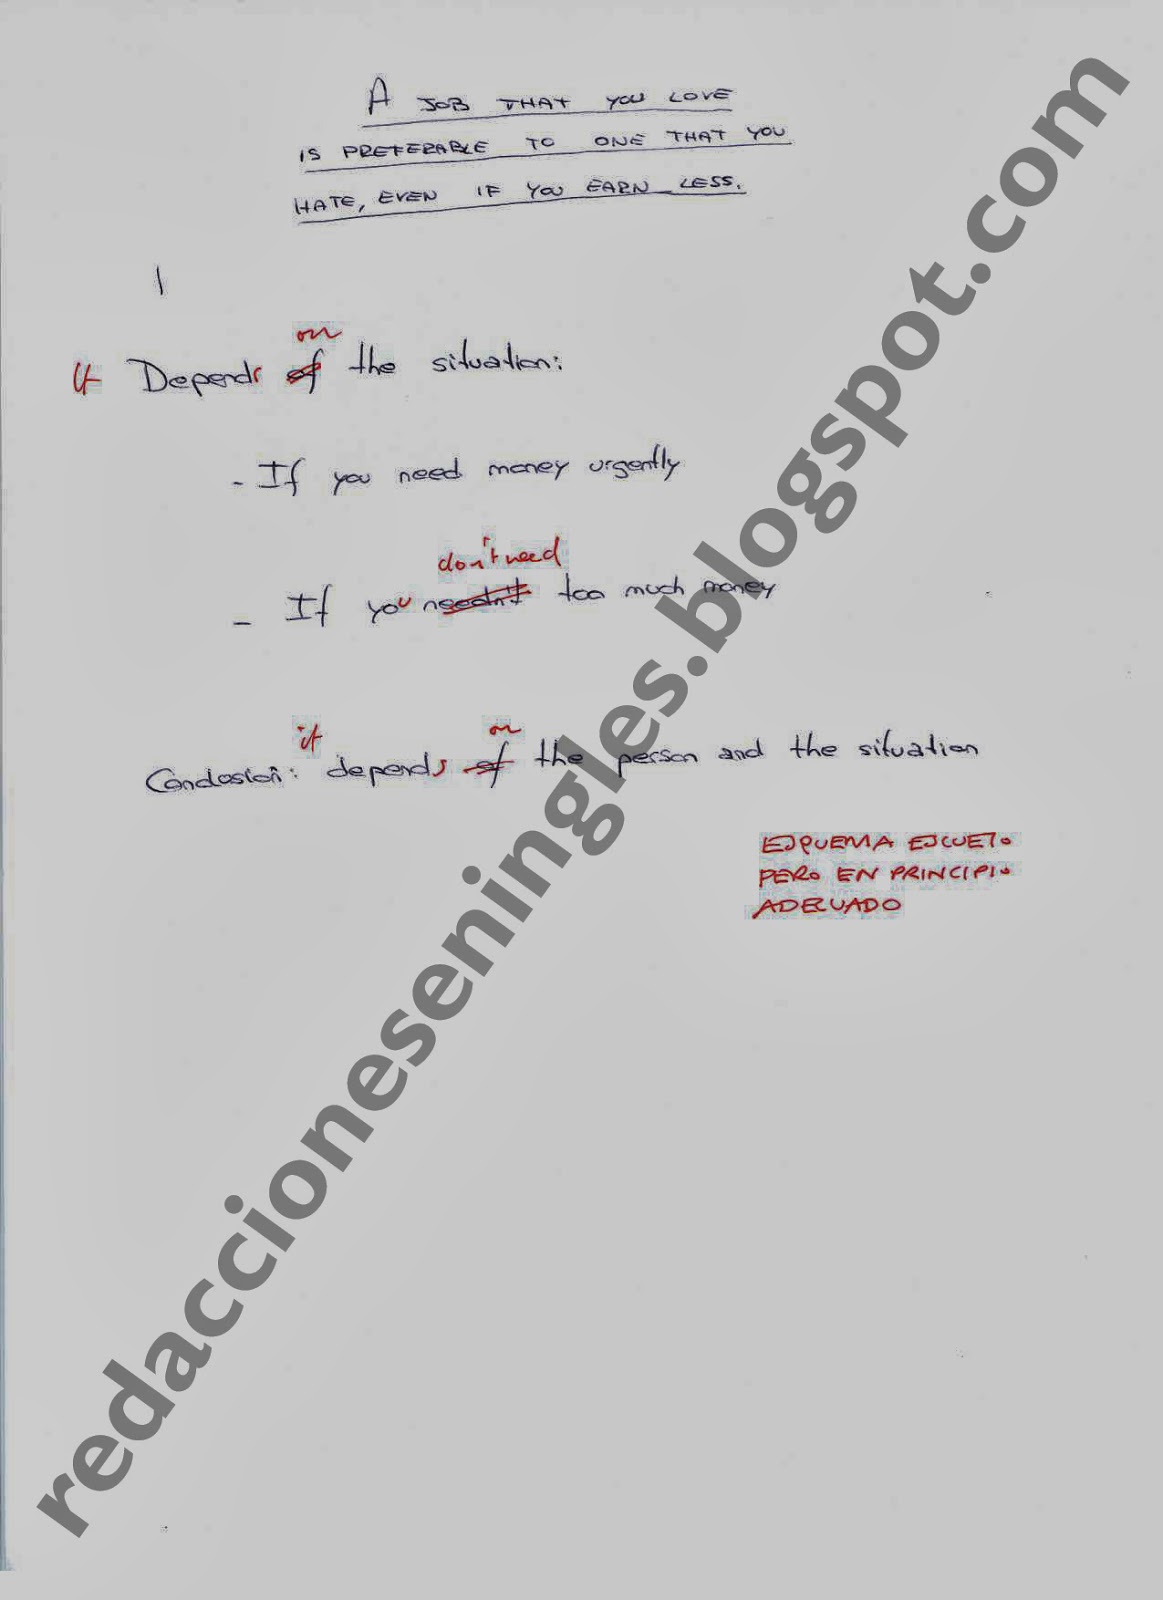 A JOB THAT YOU LOVE
IS PREFERABLE TO ONE THAT YOU
HATE, EVEN IF YOU EARN LESS.
on
It Depends of the situation:
- If you need money urgently
don't need
- If you needn't too much money
it on
Conclusion: depends of the person and the situation
ESQUEMA ESCUETO
PERO EN PRINCIPIO
ADECUADO
redaccioneseningles.blogspot.com